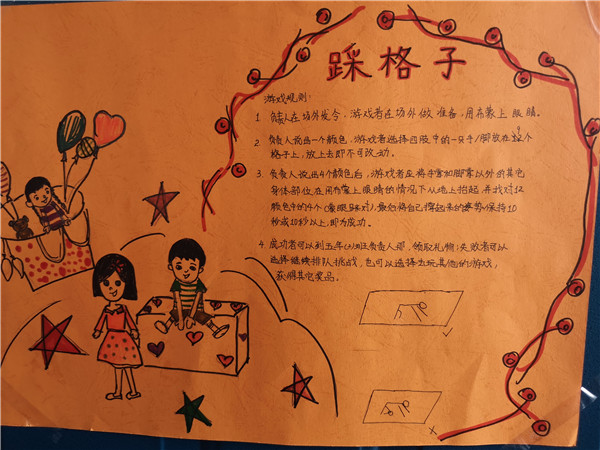 踩格子
游戏规则:
1. 负责人在场外发令,游戏者在场外做准备,用布蒙上眼睛。
2. 负责人说出一个颜色,游戏者选择四肢中的一只手/脚放在这个
格子上,放上去即不可改动。
3. 负责人说出4个颜色后,游戏者应将手掌和脚掌以外的其它
身体部位在用布蒙上眼睛的情况下从地上抬起,并找对12
颜色中的4个(蒙眼踩对),最后将自己撑起来的姿势保持10
秒或10秒以上,即为成功。
4. 成功者可以到五年(6)班负责人那,领取礼物;失败者可以
选择继续排队挑战,也可以选择去玩其他的游戏,
获得其它奖品。